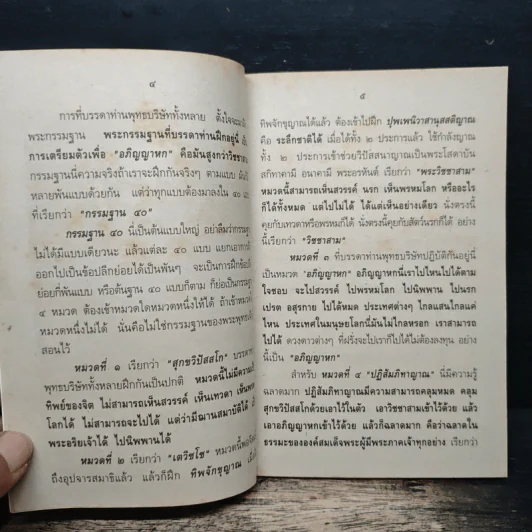 ๔
การที่บรรดาท่านพุทธบริษัททั้งหลาย ตั้งใจจะมา
พระกรรมฐาน พระกรรมฐานที่บรรดาท่านฝึกอยู่นี้
การเตรียมตัวเพื่อ "อภิญญาหก" คือมันสูงกว่าวิชชา
กรรมฐานนี้ความจริงถ้าเราจะฝึกกันจริงๆ ตามแบบ
หลายพันแบบด้วยกัน แต่ว่าทุกแบบต้องมาลงใน ๔๐
ที่เรียกว่า "กรรมฐาน ๔๐"
กรรมฐาน ๔๐ นี้เป็นต้นแบบใหญ่ อย่าลืมว่ากรรม
ไม่ได้มีแบบเดียวนะ แล้วแต่ละ ๔๐ แบบ แยกเอาการ
ออกไปเป็นข้อปลีกย่อยได้เป็นพันๆ จะเป็นการฝึกข้อ
ย่อยกี่พันแบบ หรือต้นฐาน ๔๐ แบบก็ตาม ก็ย่อเป็นกรรม
๔ หมวด ต้องเข้าหมวดใดหมวดหนึ่งให้ได้ ถ้าเข้าหมวด
หมวดหนึ่งไม่ได้ นั่นคือไม่ใช่กรรมฐานของพระพุทธ
สอนไว้
หมวดที่ ๑ เรียกว่า "สุกขวิปัสสโก" บรรดา
พุทธบริษัททั้งหลายฝึกกันเป็นปกติ หมวดนี้ไม่มีความ
ทิพย์ของจิต ไม่สามารถเห็นสวรรค์ เห็นเทวดา เห็น
โลกได้ ไม่สามารถจะไปได้ แต่ว่ามีฌานสมาบัติได้
พระอริยเจ้าได้ ไปนิพพานได้
หมวดที่ ๒ เรียกว่า "เตวิชโช" หมวดนี้พอ
ถึงอุปจารสมาธิแล้ว แล้วก็ฝึก ทิพจักขุญาณ
๕
ทิพจักขุญาณได้แล้ว ต้องเข้าไปฝึก ปุพเพนิวาสานุสสติญาณ
คือ ระลึกชาติได้ เมื่อได้ทั้ง ๒ ประการแล้ว ใช้กำลังญาณ
ทั้ง ๒ ประการเข้าช่วยวิปัสสนาญาณเป็นพระโสดาบัน
สกิทาคามี อนาคามี พระอรหันต์ เรียกว่า "พระวิชชาสาม"
หมวดนี้สามารถเห็นสวรรค์ นรก เห็นพรหมโลก หรืออะไร
ก็ได้ทั้งหมด แต่ไปไม่ได้ ได้แต่เห็นอย่างเดียว นั่งตรงนี้
คุยกับเทวดาหรือพรหมก็ได้ นั่งตรงนี้คุยกับสัตว์นรกก็ได้ อย่าง
นี้เรียกว่า "วิชชาสาม"
หมวดที่ ๓ ที่บรรดาท่านพุทธบริษัทปฏิบัติกันอยู่นี้
เป็นหมวด "อภิญญาหก" อภิญญาหกนี่เราไปไหนไปได้ตาม
ใจชอบ จะไปสวรรค์ ไปพรหมโลก ไปนิพพาน ไปนรก
เปรต อสุรกาย ไปได้หมด ประเทศต่างๆ ไกลแสนไกลแค่
ไหน ประเทศในมนุษยโลกนี่มันไม่ไกลหรอก เราสามารถ
ไปได้ ดวงดาวต่างๆ ที่ฝรั่งจะไปเราก็ไปได้ไม่ต้องลงทุน อย่าง
นี้เป็น "อภิญญาหก"
สำหรับ หมวดที่ ๔ "ปฏิสัมภิทาญาณ" นี่มีความรู้
ฉลาดมาก ปฏิสัมภิทาญาณมีความสามารถคลุมหมด คลุม
สุกขวิปัสสโกด้วยเอาไว้ในตัว เอาวิชชาสามเข้าไว้ด้วย แล้ว
เอาอภิญญาหกเข้าไว้ด้วย แล้วก็ฉลาดมาก คือว่าฉลาดใน
ธรรมะขององค์สมเด็จพระผู้มีพระภาคเจ้าทุกอย่าง เรียกว่า